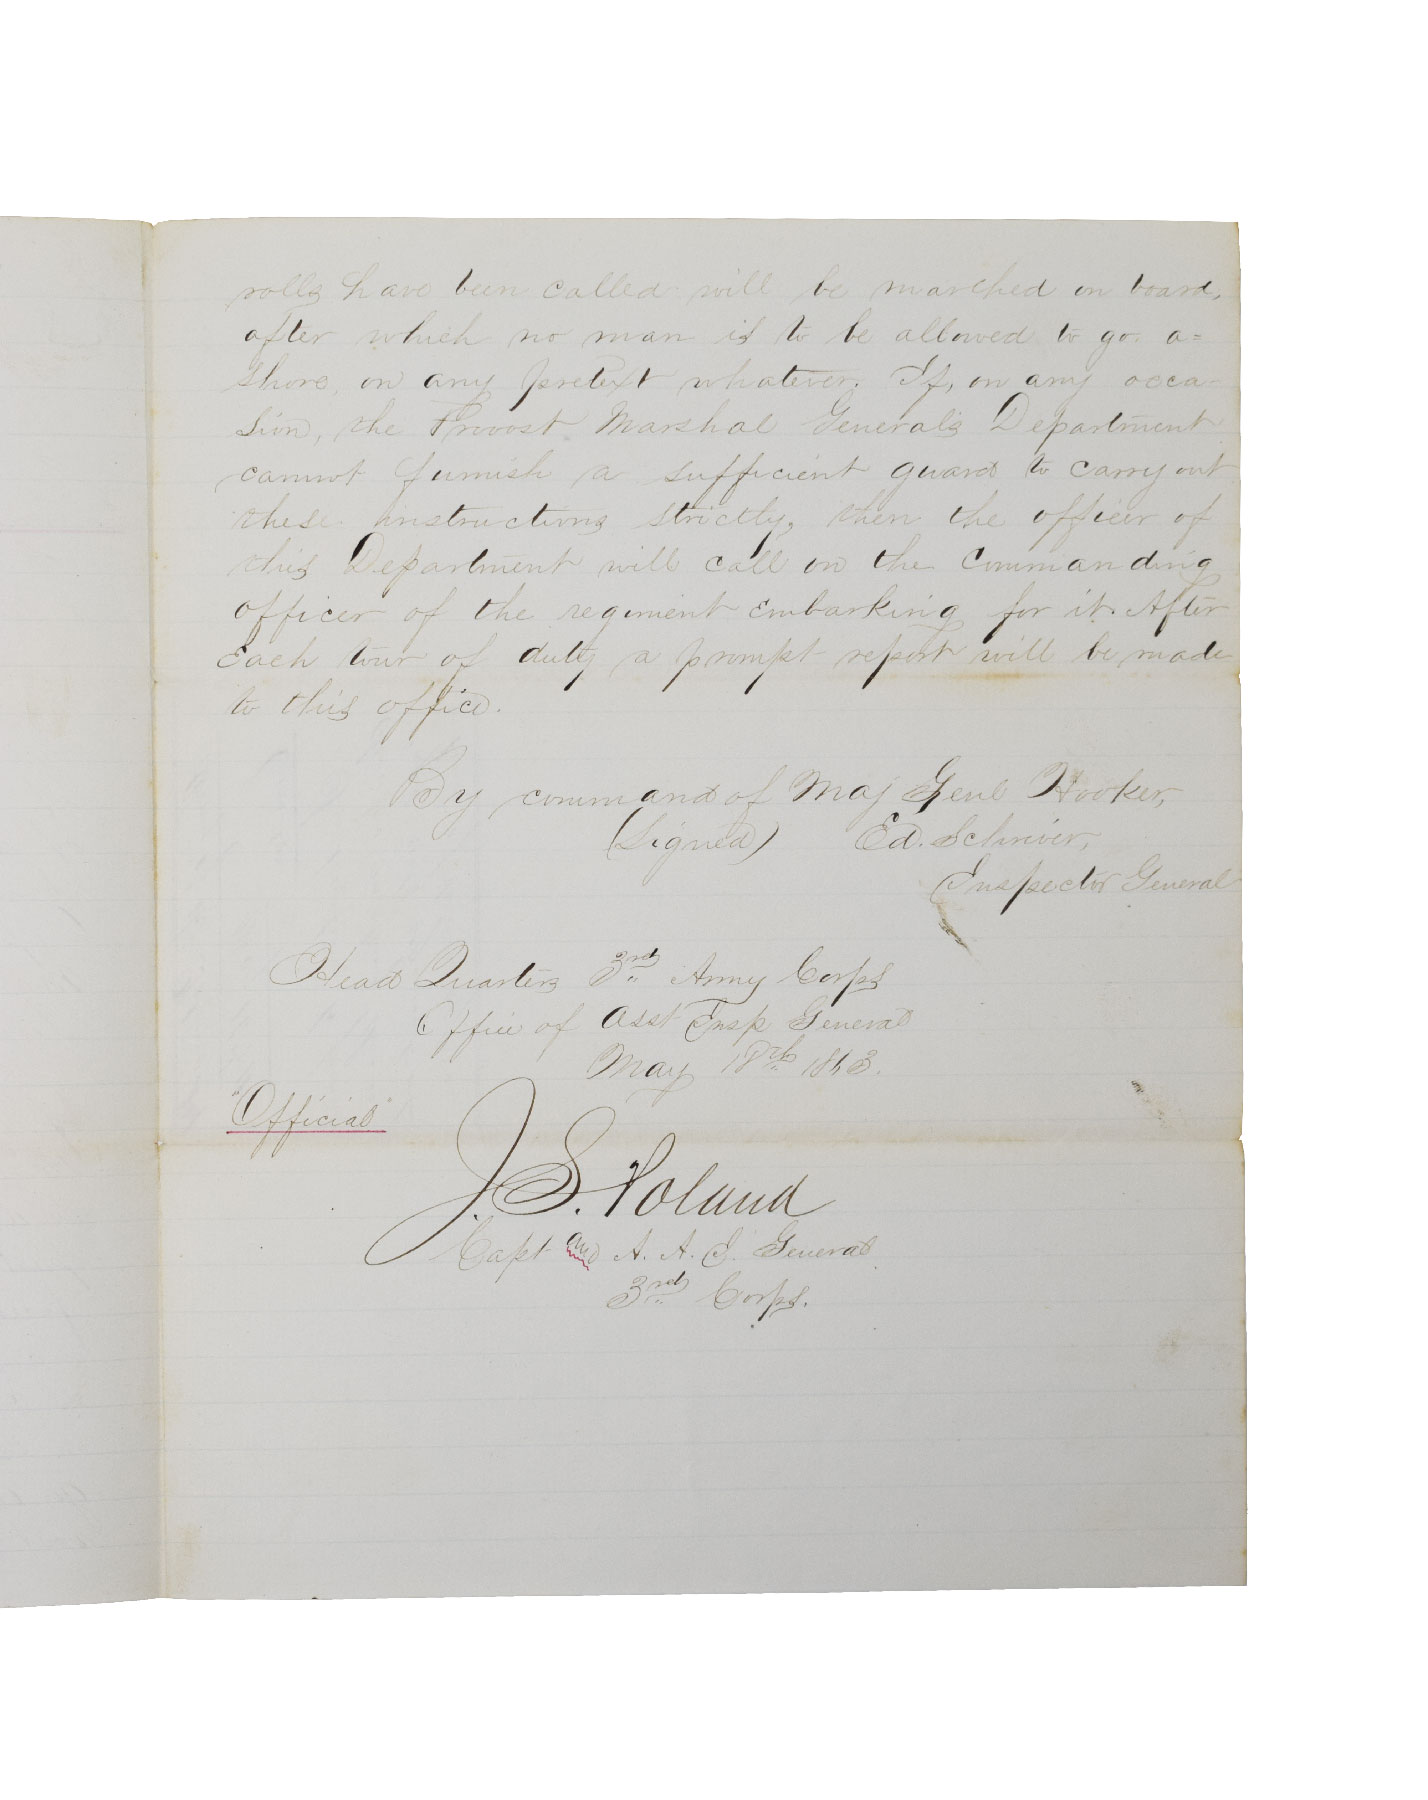 rolls have been called will be marched on board,
after which no man is to be allowed to go a=
shore on any pretext whatever. If, on any occa-
sion, the Provost Marshal General's Department
cannot furnish a sufficient guard to carry out
these instructions strictly, then the officer of
this Department will call on the Commanding
officer of the regiment embarking for it. After
each tour of duty a prompt report will be made
to this office.
By command of Maj Genl Hooker,
(Signed) Ed. Schriver,
Inspector General
Head Quarters 3rd Army Corps
Office of Asst Insp General
May 18th 1863.
"Official"
J. S. Poland
Capt and A. A. I. General
3rd Corps.